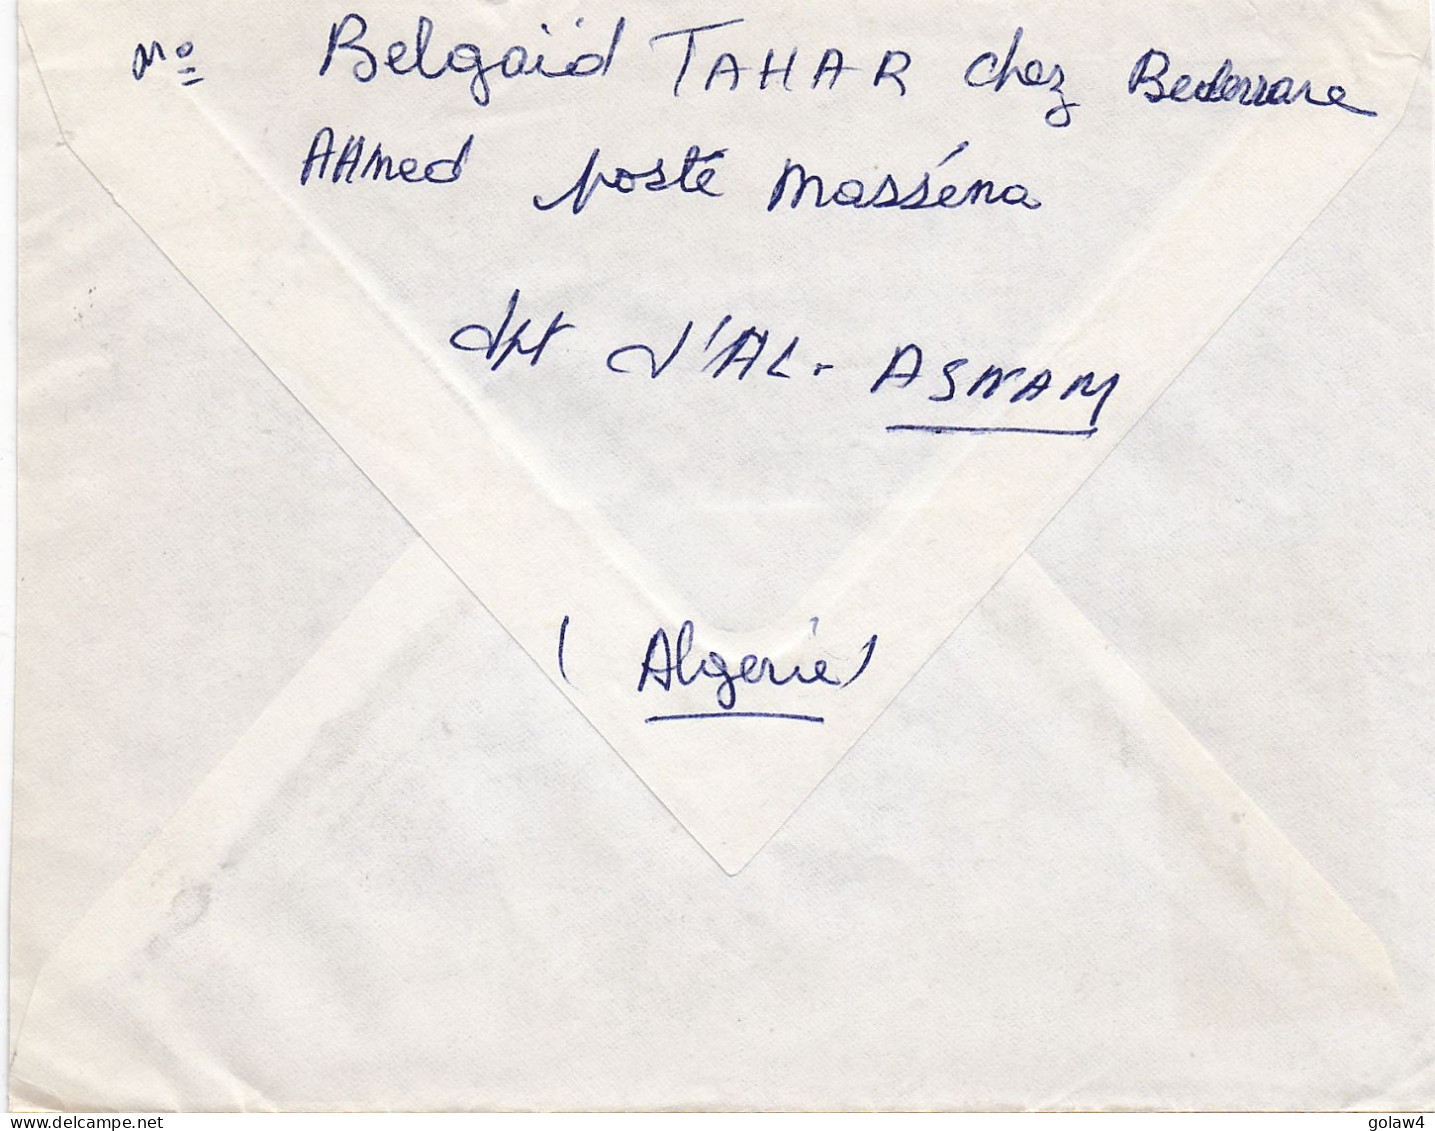 Mo Belgaïd TAHAR chez
AHmed poste Masséna
dpt d'AL-ASNAM
(Algerie)
delcampe.net
golaw4